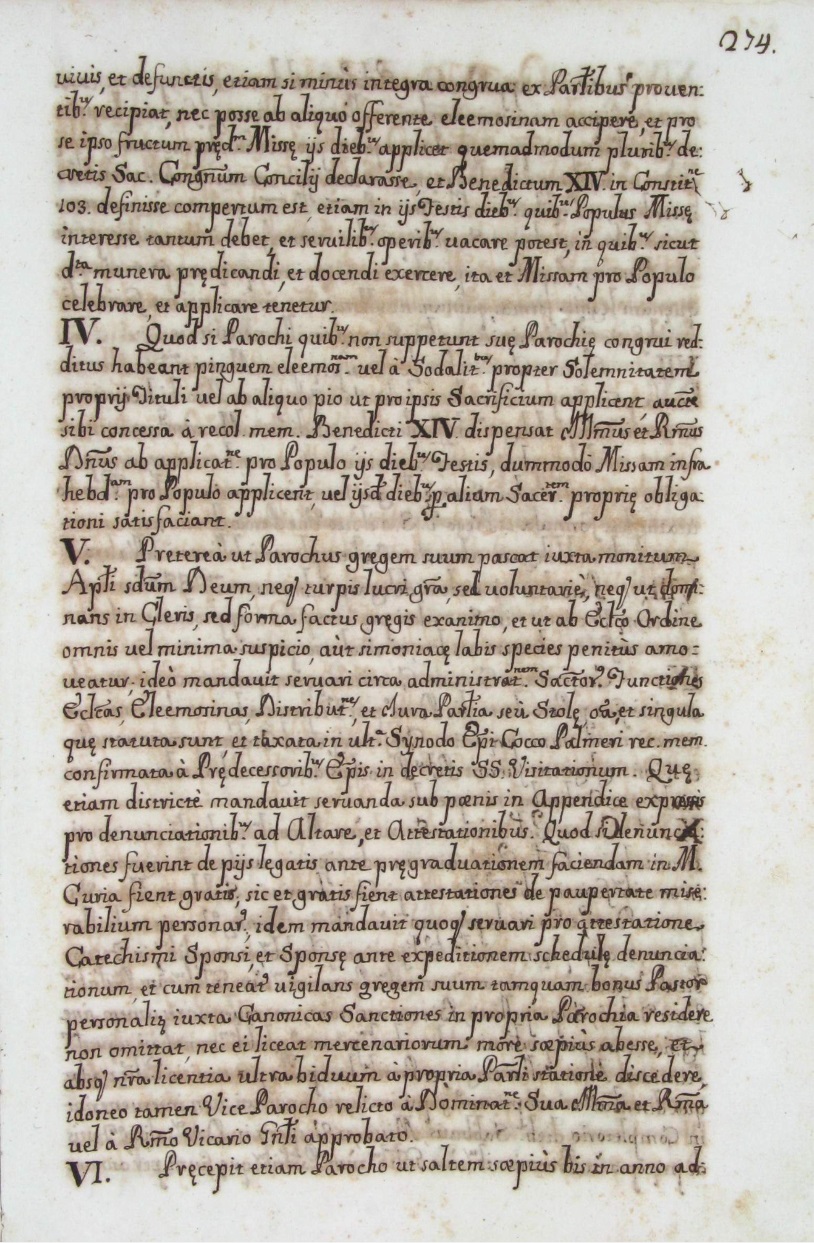 274.
uiuis, et defunctis, etiam si minùs integra congrua ex Parłibus prouen:
tib.ꝰ recipiat, nec posse ab aliquo offerente eleemosinam accipere, et pro
se ipso fructum pręd.m Missę ijs dieb.ꝰ applicet quemadmodum plurib.ꝰ de:
cretis Sac. Congñum Concilij declarasse, et Benedictum XIV. in Constit.ne
103. definisse compertum est, etiam in ijs Festis dieb.ꝰ quib.ꝰ Populus Missę
interesse tantum debet, et seruilib.ꝰ operib.ꝰ uacare potest, in quib.ꝰ sicut
d.ta munera prędicandi, et docendi exercere, ita et Missam pro Populo
celebrare, et applicare tenetur.
IV. Quod si Parochi quib.ꝰ non suppetunt suę Parochię congrui red:
ditus habeant pinguem eleemos.nam uel à Sodalit.bus propter Solemnitatem
proprij Tituli uel ab aliquo pio ut pro ipsis Sacrificium applicent, aucte
sibi concessa à recol. mem. Benedicti XIV. dispensat Illm̃us et Rm̃us
Dñus ab applicat.ne pro Populo ijs dieb.ꝰ Festis, dummodò Missam infra
hebd.am pro Populo applicent, uel ijsd dieb.ꝰ ꝑ aliam Sacer.tem proprię obliga
tioni satisfaciant.
V. Pretereà ut Parochus gregem suum pascat iuxta monitum
Apłi sdũm Deum, neq̧ turpis lucri grã, sed uoluntariè, neq̧ ut domi:
nans in Cleris, sed forma factus gregis ex animo, et ut ab Ecłco Ordine
omnis uel minima suspicio, aùt simoniacę labis species penitùs amo:
ueatur, ideò mandauit seruari circa administrat.nem Sactor. Functiones
Ecłtas, Eleemosinas, Distribut.nes, et Iura Parłia seù Stolę, oĩa, et singula
quę statuta sunt, et taxata in ult.a Synodo Epĩ Cocco Palmeri rec. mem.
confirmata à Prędecessorib.ꝰ Epĩs in decretis SS. Visitationum. Quę
etiam districtè mandauit seruanda sub pœnis in Appendice expressis
pro denunciationib.ꝰ ad Altare, et Attestationibus. Quod si denuncia:
tiones fuerint de pijs legatis ante pręgraduationem faciendam in M.
Curia fient gratis, sic et gratis fient attestationes de paupertate mise:
rabilium personar., idem mandauit quoq̧ seruari pro attestatione
Catechismi Sponsi, et Sponsę ante expeditionem schedulę denuncia:
tionum, et cum teneat.r uigilans gregem suum tamquam bonus Pastor
personalit.r iuxta Canonicas Sanctiones in propria Parochia residere
non omittat, nec ei liceat mercenariorum more sœpiùs abesse, et
absq̧ nr̃a licentia ultra biduum à propria Parłi statione discedere,
idoneo tamen Vice Parocho relicto à Dominat.ne Sua Illm̃a et Rm̃a
uel à Rm̃o Vicario Gñłi approbato.
VI. Pręcepit etiam Parocho ut saltem sœpiùs bis in anno ad: